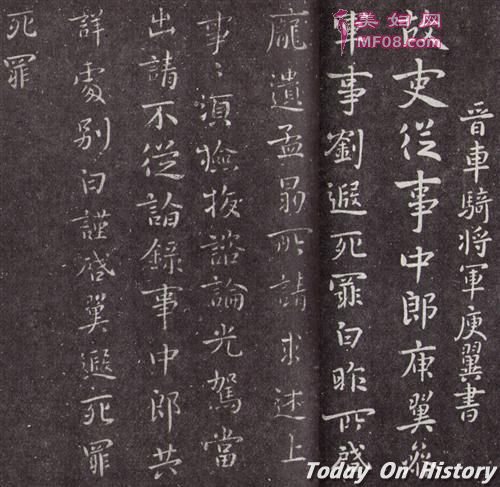 美妇网
MF08.com
晉車騎將軍庾翼書
故吏從事中郎庾翼參
軍事劉遐死罪白昨所啟
龐遺孟昜所請求述上
事〻須撿校諮論光駕當
出請不從詣錄事中郎共
詳處別白謹啓翼遐死罪
死罪
Today On History